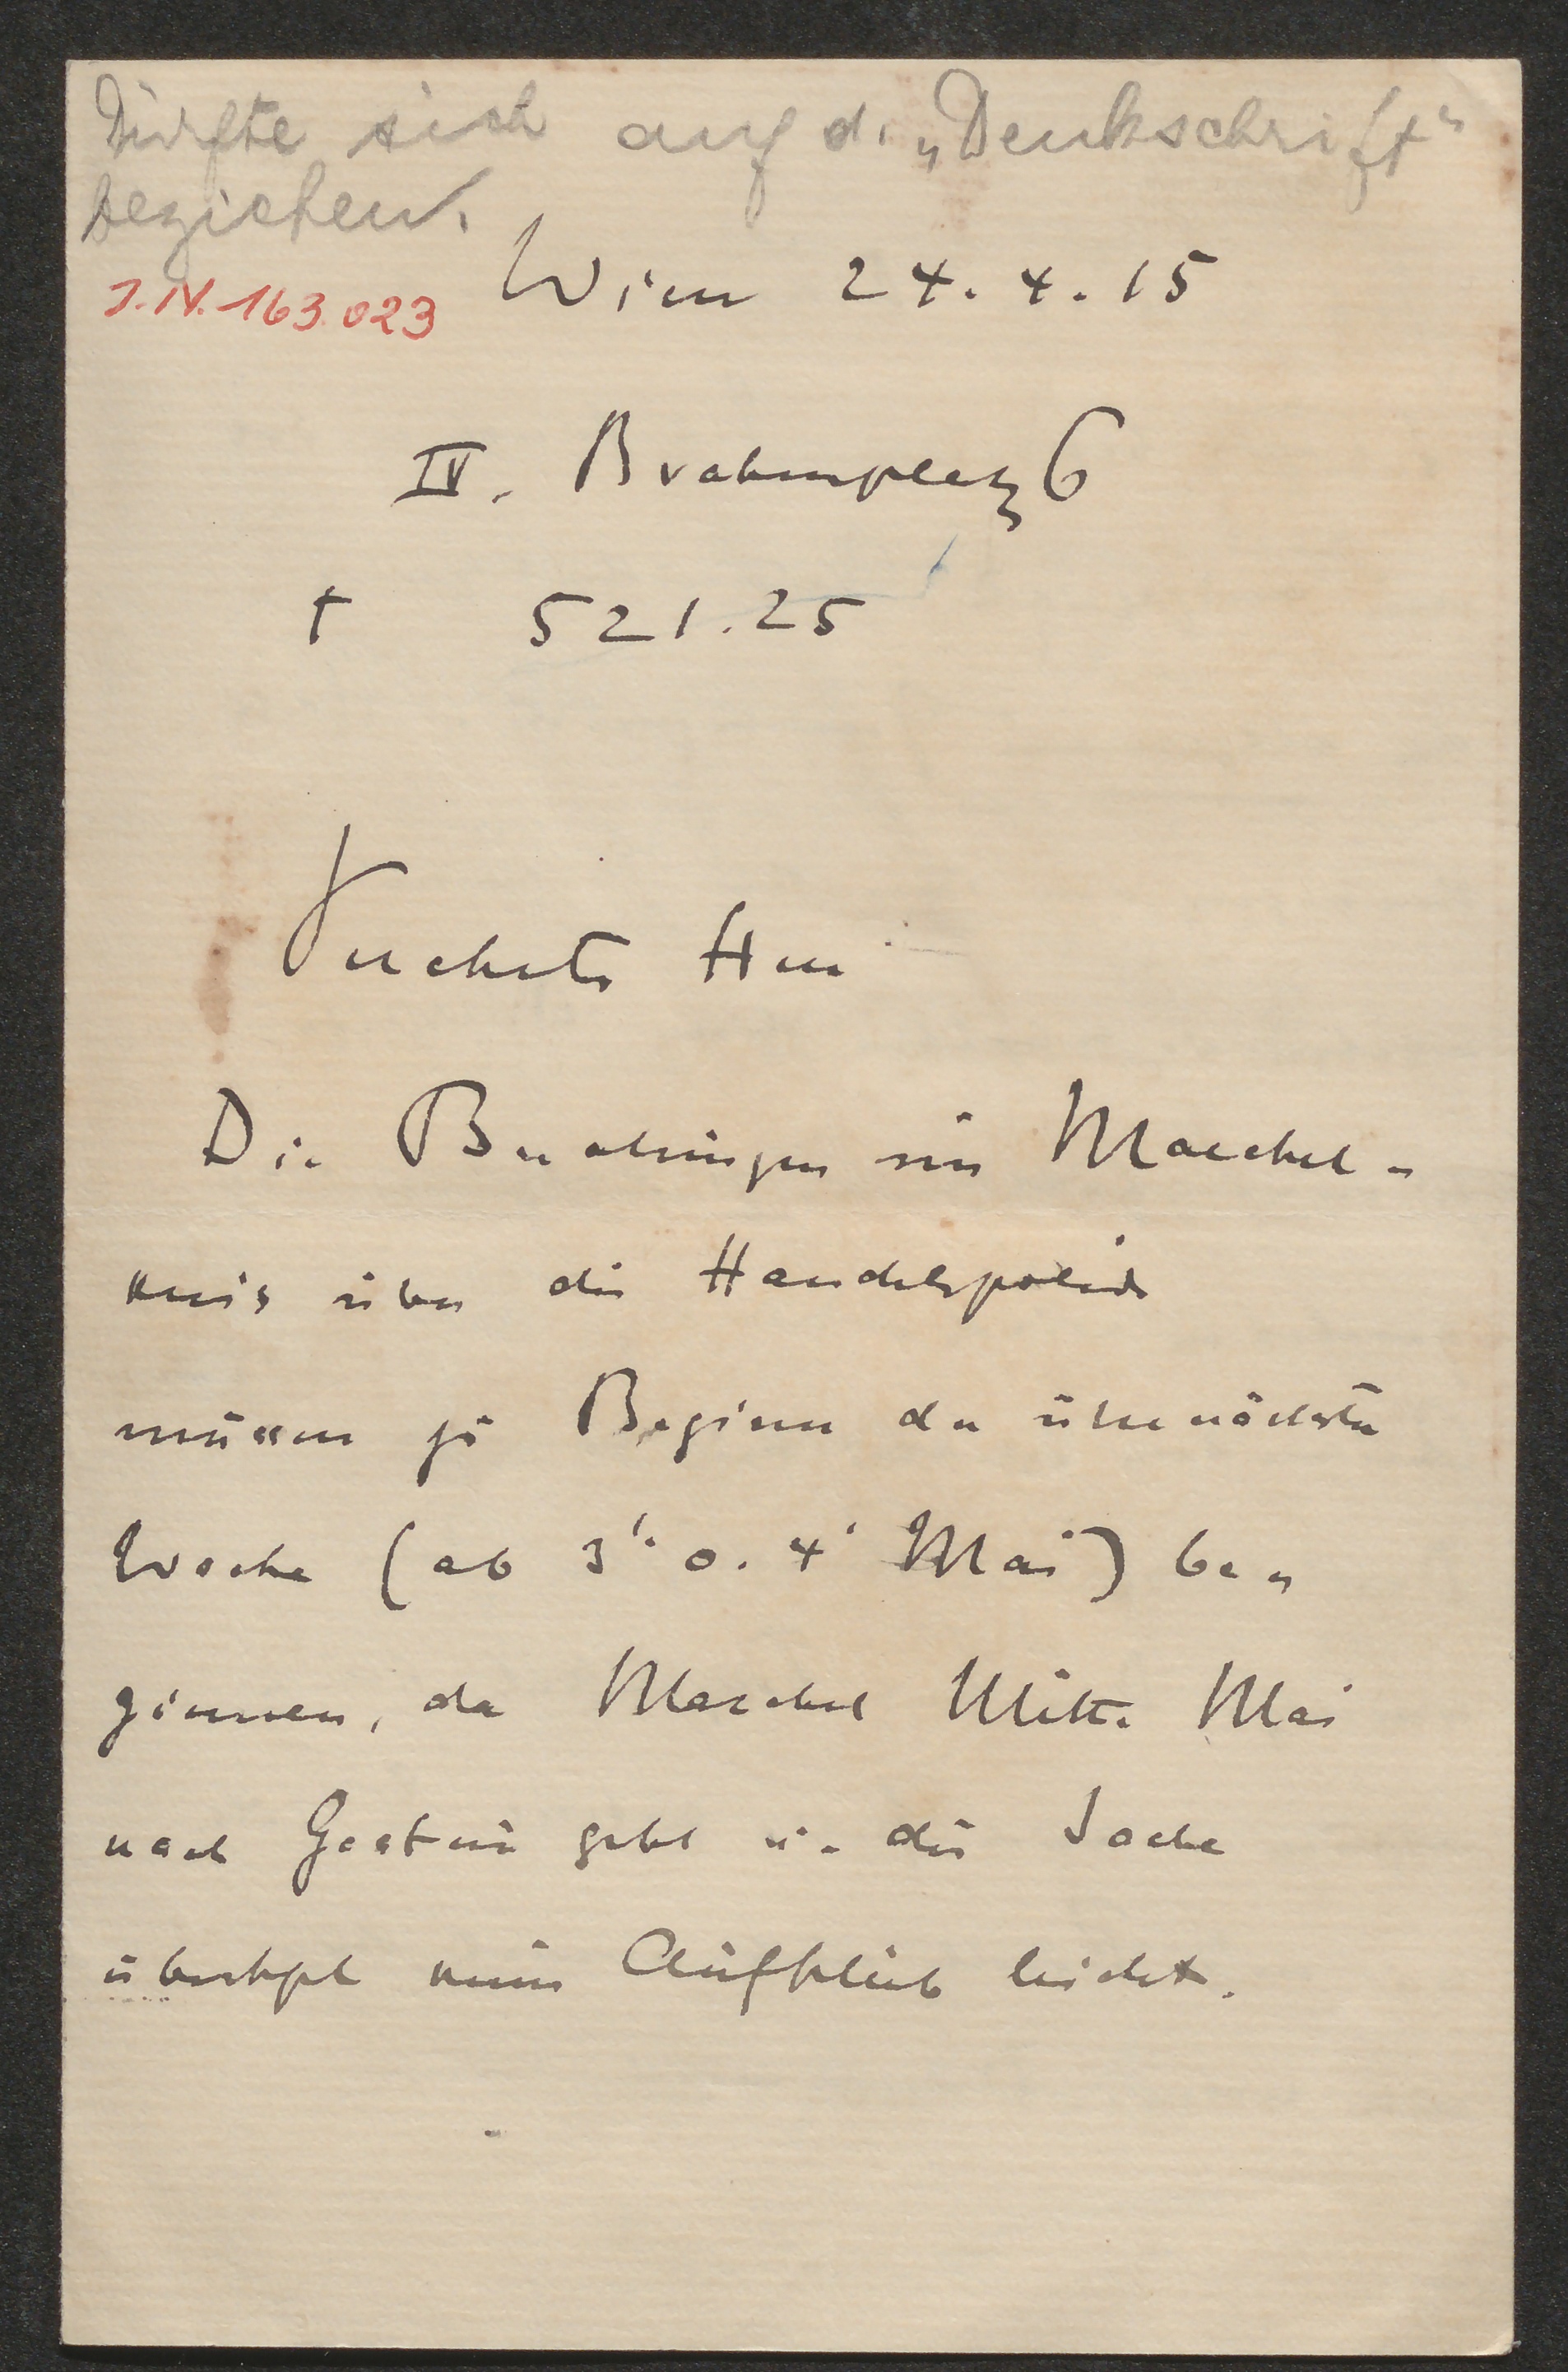 Dürfte sich auf d. „Denkschrift"
beziehen.
J.N. 163.023
Wien 24.4.15
IV. Brahmsplatz 6
T 521.25
Verehrter Herr
Die Beratungen im Marchet-
kreis über die Handelspolitik
müssen zu Beginn der übernächsten
Woche (ab 3. o. 4. Mai) be„
ginnen, da Marchet Mitte Mai
nach Gastein geht u. die Sache
überhpt keinen Aufschub leidet.